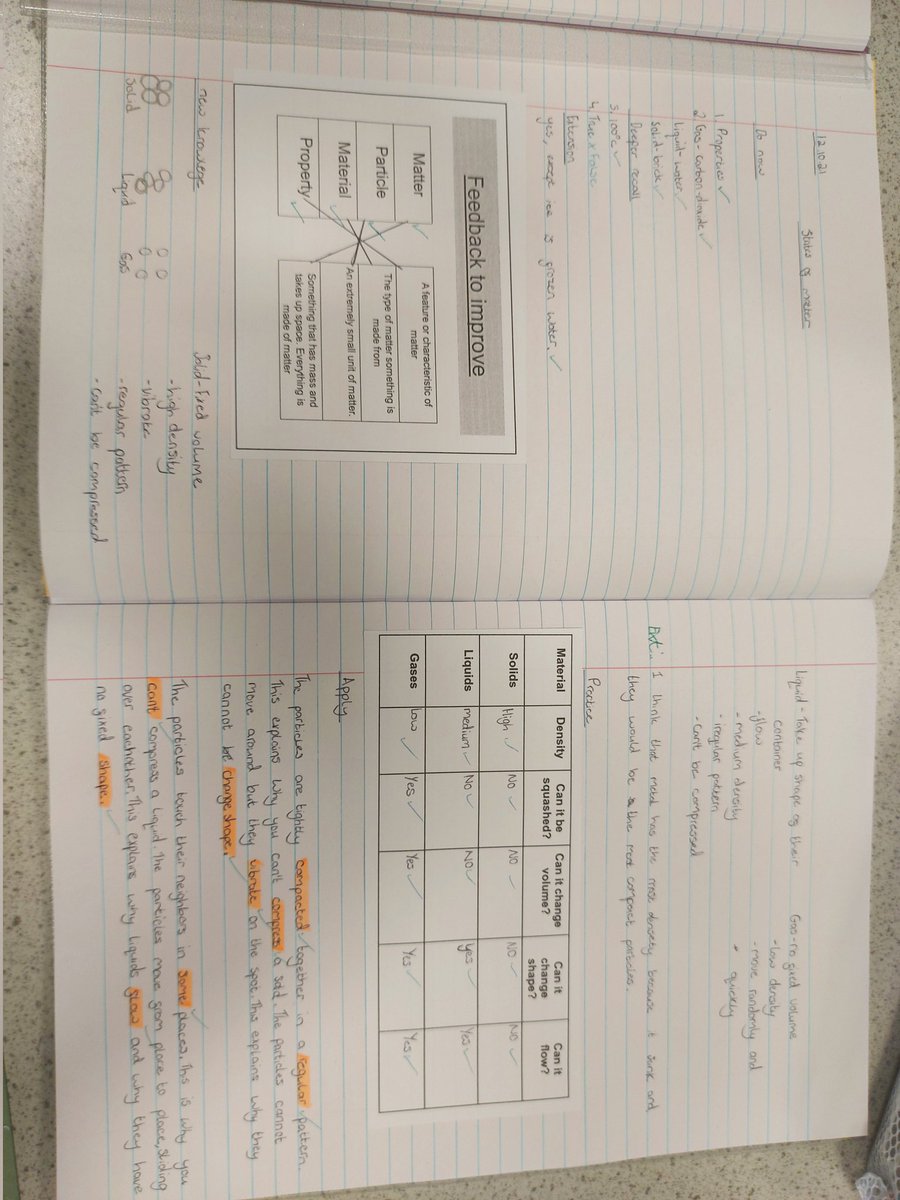 12.10.21
States of matter
Do now
1. Properties ✓
2. Gas - carbon dioxide ✓
Liquid - water ✓
Solid - brick ✓
Deeper recall
3. 100°C ✓
4. True x False
Extension
yes, except ice is frozen water ✓
Feedback to improve
Matter
Particle
Material
Property
A feature or characteristic of
matter
The type of matter something is
made from
An extremely small unit of matter.
Something that has mass and
takes up space. Everything is
made of matter
new knowlege
Solid Liquid Gas
Solid - Fixed volume
- high density
- vibrate
- regular pattern
- can't be compressed
Liquid - Take up shape of their
container
- flow
- medium density
- irregular pattern
- can't be compressed
Gas - no fixed volume
- low density
- move randomly and
quickly
Ext:. I think that metal has the most density because it sunk and
they would be the most compact particles.
Practice
Material Density Can it be squashed? Can it change volume? Can it change shape? Can it flow?
Solids High ✓ NO ✓ NO ✓ NO ✓ NO ✓
Liquids medium ✓ No ✓ NO ✓ yes ✓ Yes ✓
Gases low ✓ Yes ✓ Yes ✓ Yes ✓ Yes ✓
Apply
The particles are tightly compacted ✓ together in a regular ✓ pattern.
This explains why you can't compress a solid. The particles cannot
move around but they vibrate on the spot. This explains why they
cannot be change shape. ✓
The particles touch their neighbors in some places. This is why you
cant compress a liquid. The particles move from place to place, sliding
over eachother. This explains why liquids flow and why they have
no fixed shape. ✓